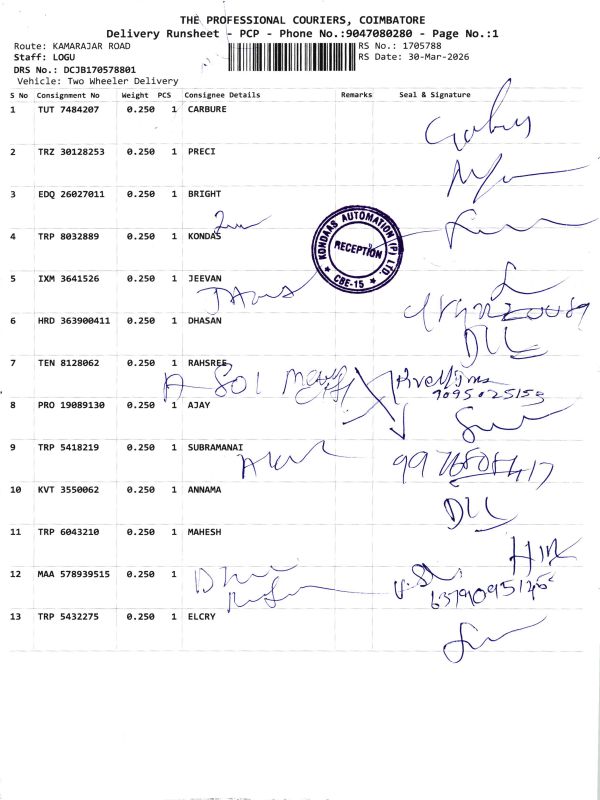 THE PROFESSIONAL COURIERS, COIMBATORE
Delivery Runsheet - PCP - Phone No.:9047080280 - Page No.:1
Route: KAMARAJAR ROAD RS No.: 1705788
Staff: LOGU RS Date: 30-Mar-2026
DRS No.: DCJB170578801
Vehicle: Two Wheeler Delivery
S No Consignment No Weight PCS Consignee Details Remarks Seal & Signature
1 TUT 7484207 0.250 1 CARBURE
2 TRZ 30128253 0.250 1 PRECI
3 EDQ 26027011 0.250 1 BRIGHT
4 TRP 8032889 0.250 1 KONDAS
KONDAAS AUTOMATION (P) LTD.
RECEPTION
CBE-15
5 IXM 3641526 0.250 1 JEEVAN
6 HRD 363900411 0.250 1 DHASAN
DLL
7 TEN 8128062 0.250 1 RAHSREE
9095025153
8 PRO 19089130 0.250 1 AJAY
9 TRP 5418219 0.250 1 SUBRAMANAI
10 KVT 3550062 0.250 1 ANNAMA
DLL
11 TRP 6043210 0.250 1 MAHESH
12 MAA 578939515 0.250 1
13 TRP 5432275 0.250 1 ELCRY